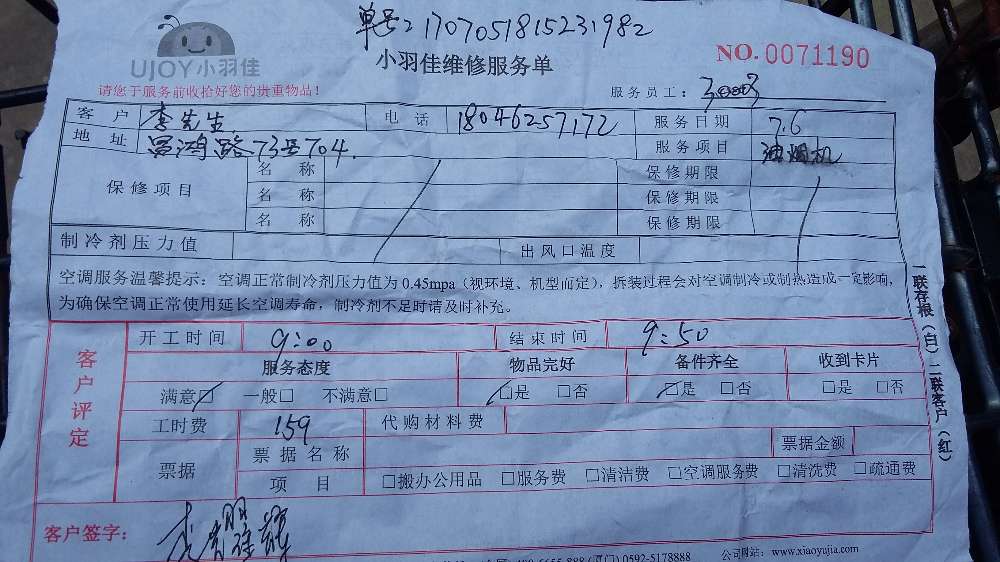 单号:1707051815231982
UJOY小羽佳
小羽佳维修服务单
NO. 0071190
请您于服务前收拾好您的贵重物品!
服务员工:
客户 李先生 电话 18046257172 服务日期 7.6
地址 鸿路73号704. 服务项目 油烟机
保修项目 名称 保修期限
名称 保修期限
名称 保修期限
制冷剂压力值 出风口温度
空调服务温馨提示:空调正常制冷剂压力值为0.45mpa(视环境、机型而定),拆装过程会对空调制冷或制热造成一定影响,
为确保空调正常使用延长空调寿命,制冷剂不足时请及时补充。
一联存根(白)二联客户(红)
客户评定
开工时间 9:00 结束时间 9:50
服务态度 物品完好 备件齐全 收到卡片
满意☑ 一般□ 不满意□ ☑是 □否 ☑是 □否 □是 □否
工时费 159 代购材料费
票据 票据名称 票据金额
项目 □搬办公用品 □服务费 □清洁费 □空调服务费 □清洗费 □疏通费
客户签字:
(厦门) 0592-5178888 公司网站:www.xiaoyujia.com